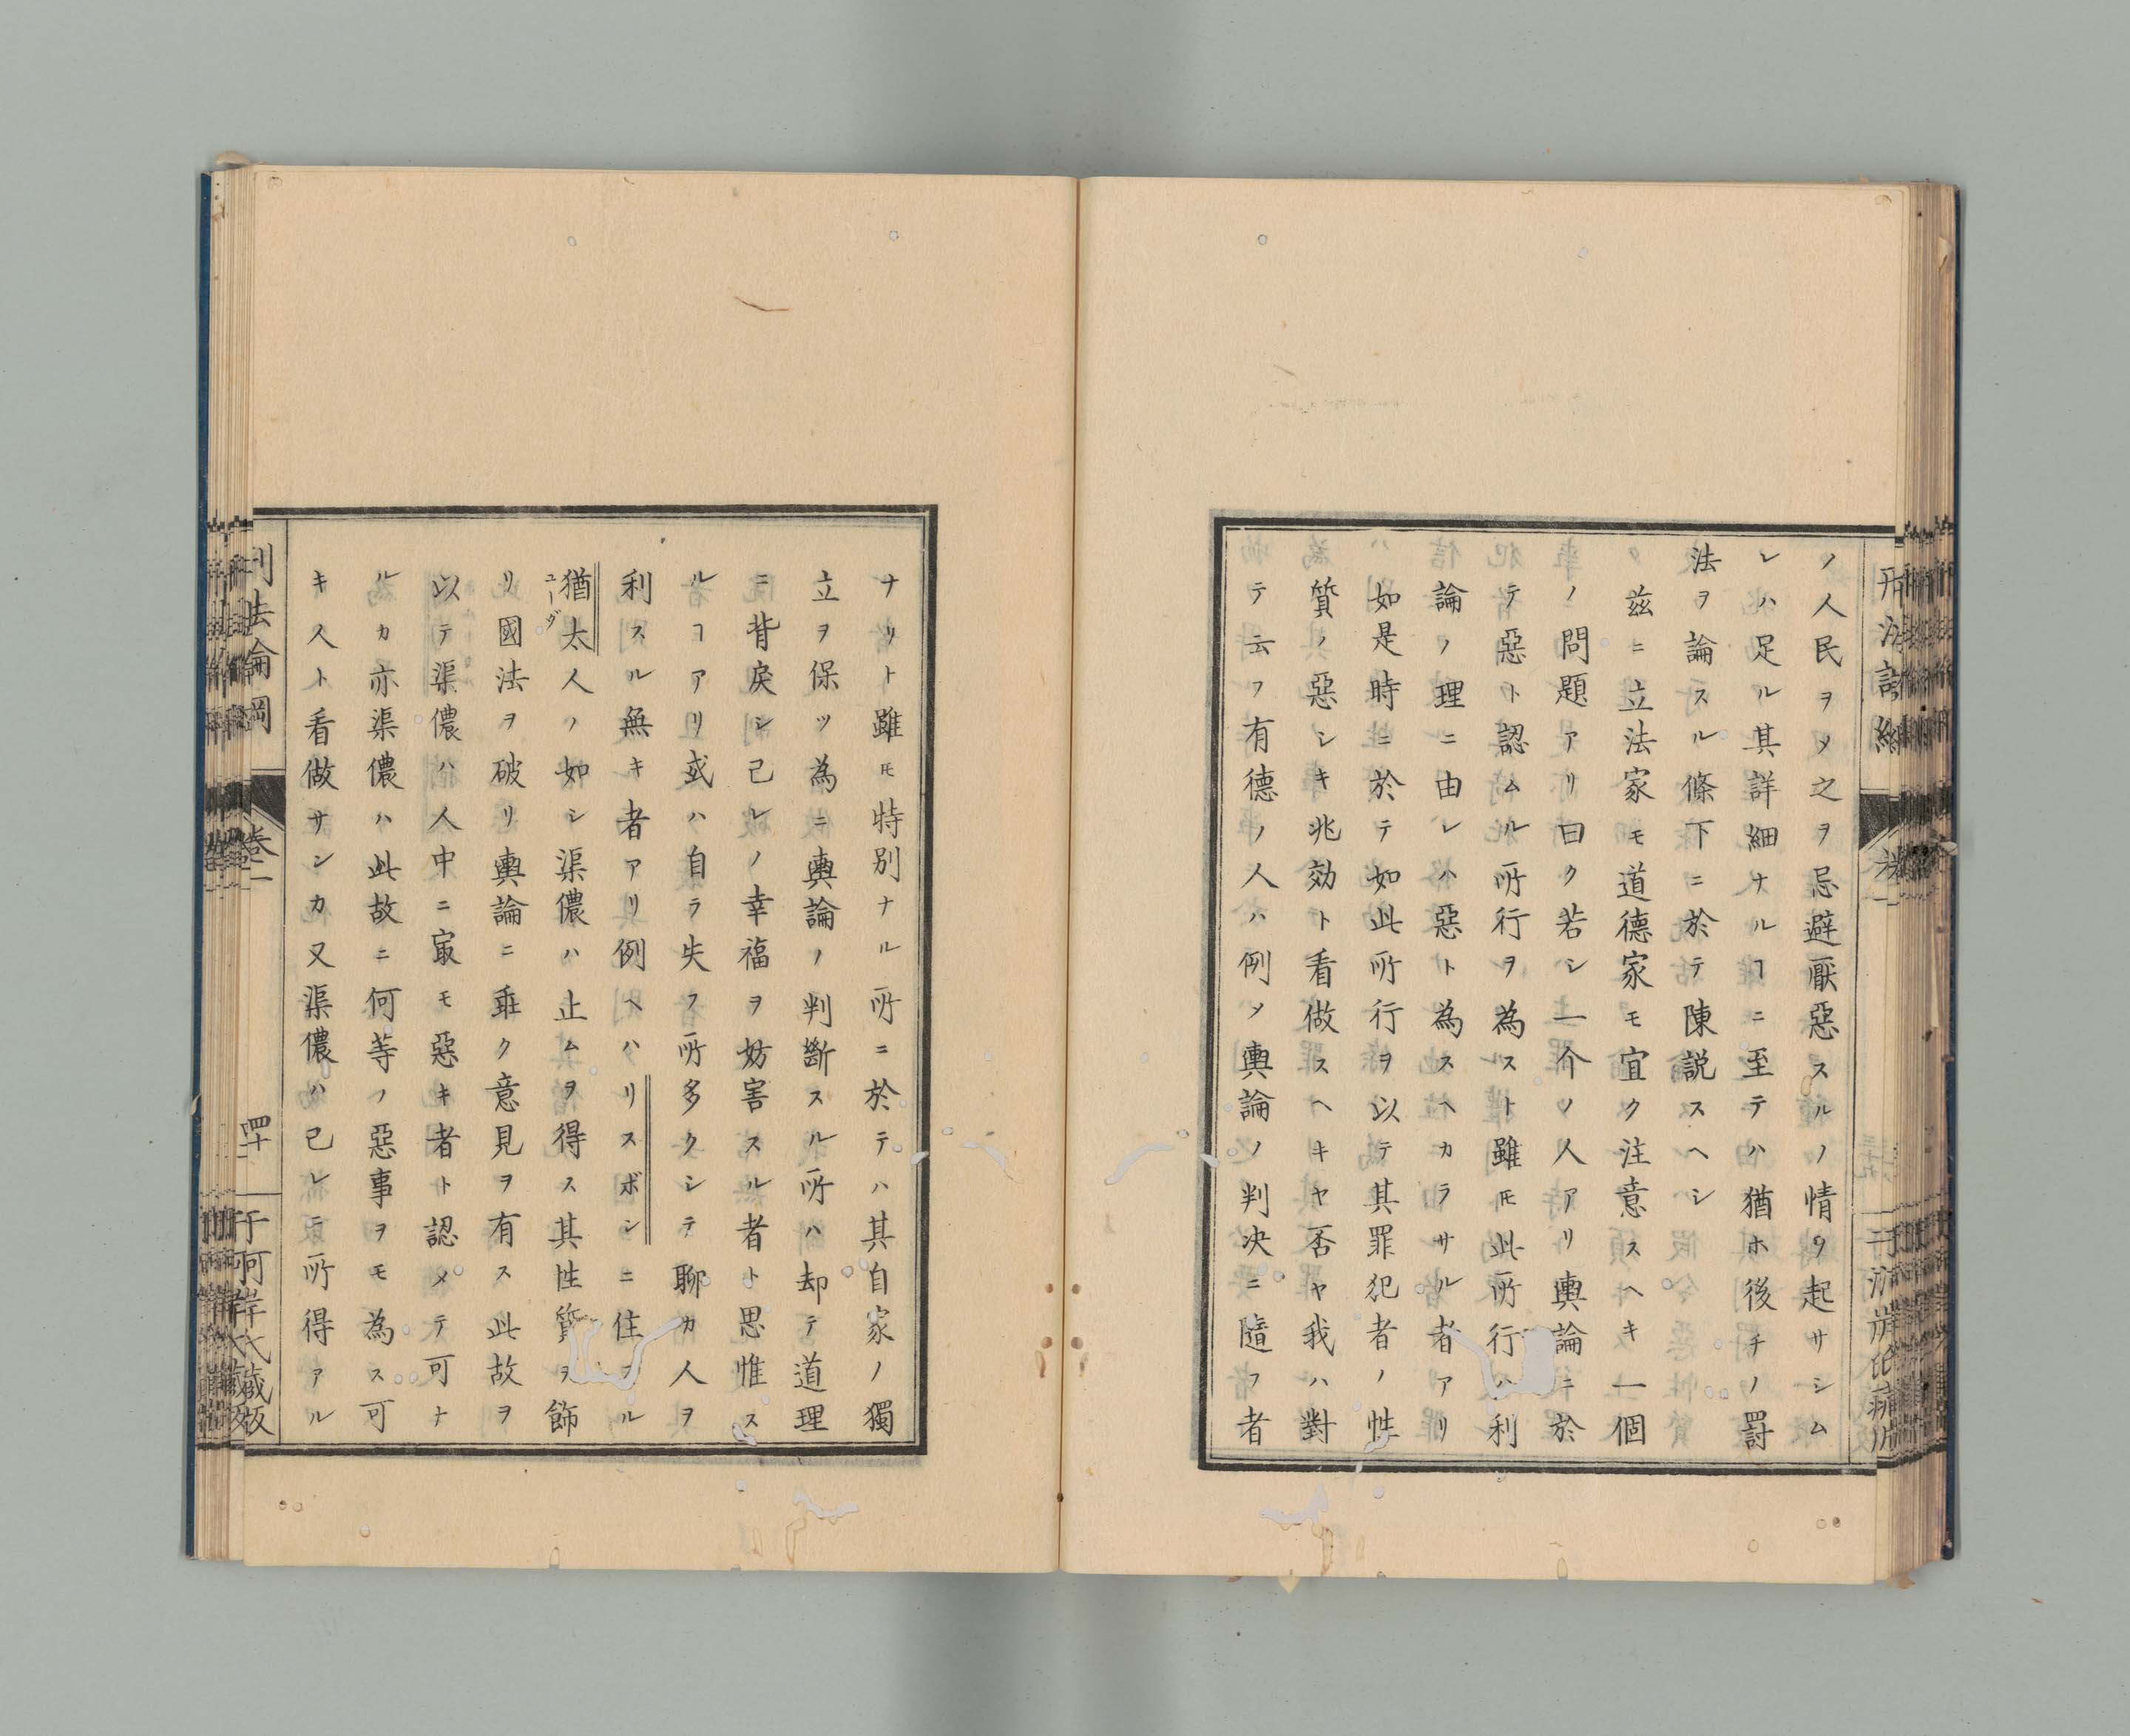 ノ人民ヲメ之ヲ忌避厭惡スルノ情ヲ起サシム
レハ足ル其詳細ナルヿニ至テハ猶ホ後チノ罸
法ヲ論スル條下ニ於テ陳説スヘシ
茲ニ立法家モ道德家モ宜ク注意スヘキ一個
ノ問題アリ曰ク若シ一介ノ人アリ輿論ニ於
テ惡ト認ムル所行ヲ為スト雖𪜈此所行ハ利
論ノ理ニ由レハ惡ト為スヘカラサル者アリ
如是時ニ於テ如此所行ヲ以テ其罪犯者ノ性
質ノ惡シキ兆効ト看做スヘキヤ否ヤ我ハ對
テ云フ有德ノ人ハ例メ輿論ノ判决ニ隨フ者
ナリト雖𪜈特別ナル所ニ於テハ其自家ノ獨
立ヲ保ツ為ニ輿論ノ判斷スル所ハ却テ道理
ニ背戻シ己レノ幸福ヲ妨害スル者ト思惟ス
ルヿアリ或ハ自ラ失フ所多クシテ聊カ人ヲ
利スル無キ者アリ例ヘハリスボンニ住スル
猶太人ノ如シ渠儂ハ止ムヲ得ス其性質ヲ飾
ユーダ
リ國法ヲ破リ輿論ニ乖ク意見ヲ有ス此故ヲ
以テ渠儂ハ人中ニ㝡モ惡キ者ト認メテ可ナ
ルカ亦渠儂ハ此故ニ何等ノ惡事ヲモ為ス可
キ人ト看做サンカ又渠儂ハ己レニ所得アル
刑法論綱
卷一
四十
于河岸氏藏板